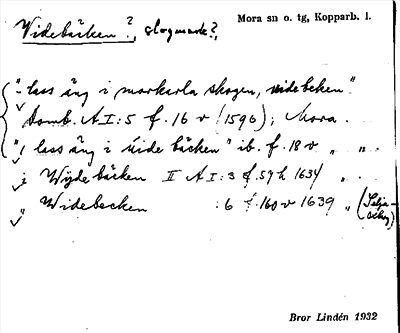 Widebäcken?, slogmark?,
Mora sn o. tg, Kopparb. l.
"1 lass äng i markarla skogen, widebeken"
Domb. A I:5 f. 16 v (1596); Mora.
"1 lass äng i uide bäcken" ib. f. 18 v " "
i Wydebäcken II A I:3 f. 59 h 1634 " .
" Widebecken :6 f. 160 v 1639 " (Selja-
Bror Lindén 1932